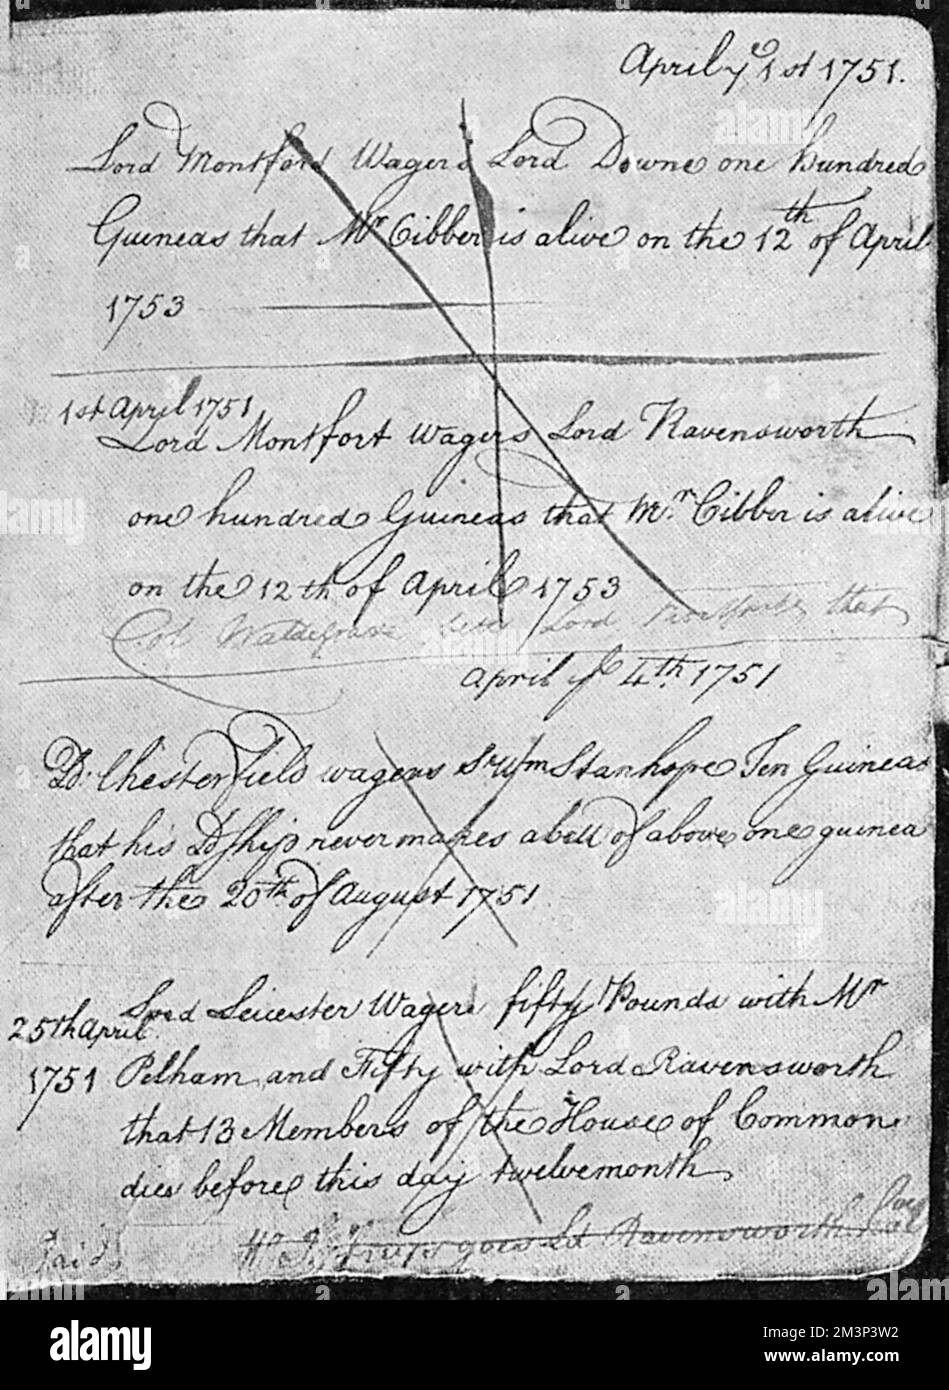 April yͤ 1st 1751.
Lord Montford Wagers Lord Downe one hundred
Guineas that Mr Cibber is alive on the 12th of April
1753
1st April 1751
Lord Montfort wagers Lord Ravensworth
one hundred Guineas that Mr. Cibber is alive
on the 12th of April 1753
Col Waldegrave bets Lord that
April ye 4th 1751
Ld. Chesterfield wagers Sr Wm Stanhope Ten Guineas
that his Ldship never makes a bill of above one guinea
after the 20th of August 1751
Lord Leicester Wagers fifty Pounds with Mr
25th April
1751 Pelham and Fifty with Lord Ravensworth
that 13 Members of the House of Common
dies before this day twelvemonth
Paid. goes Ld Ravensworth
alamy
Image ID: 2M3P3W2
www.alamy.com